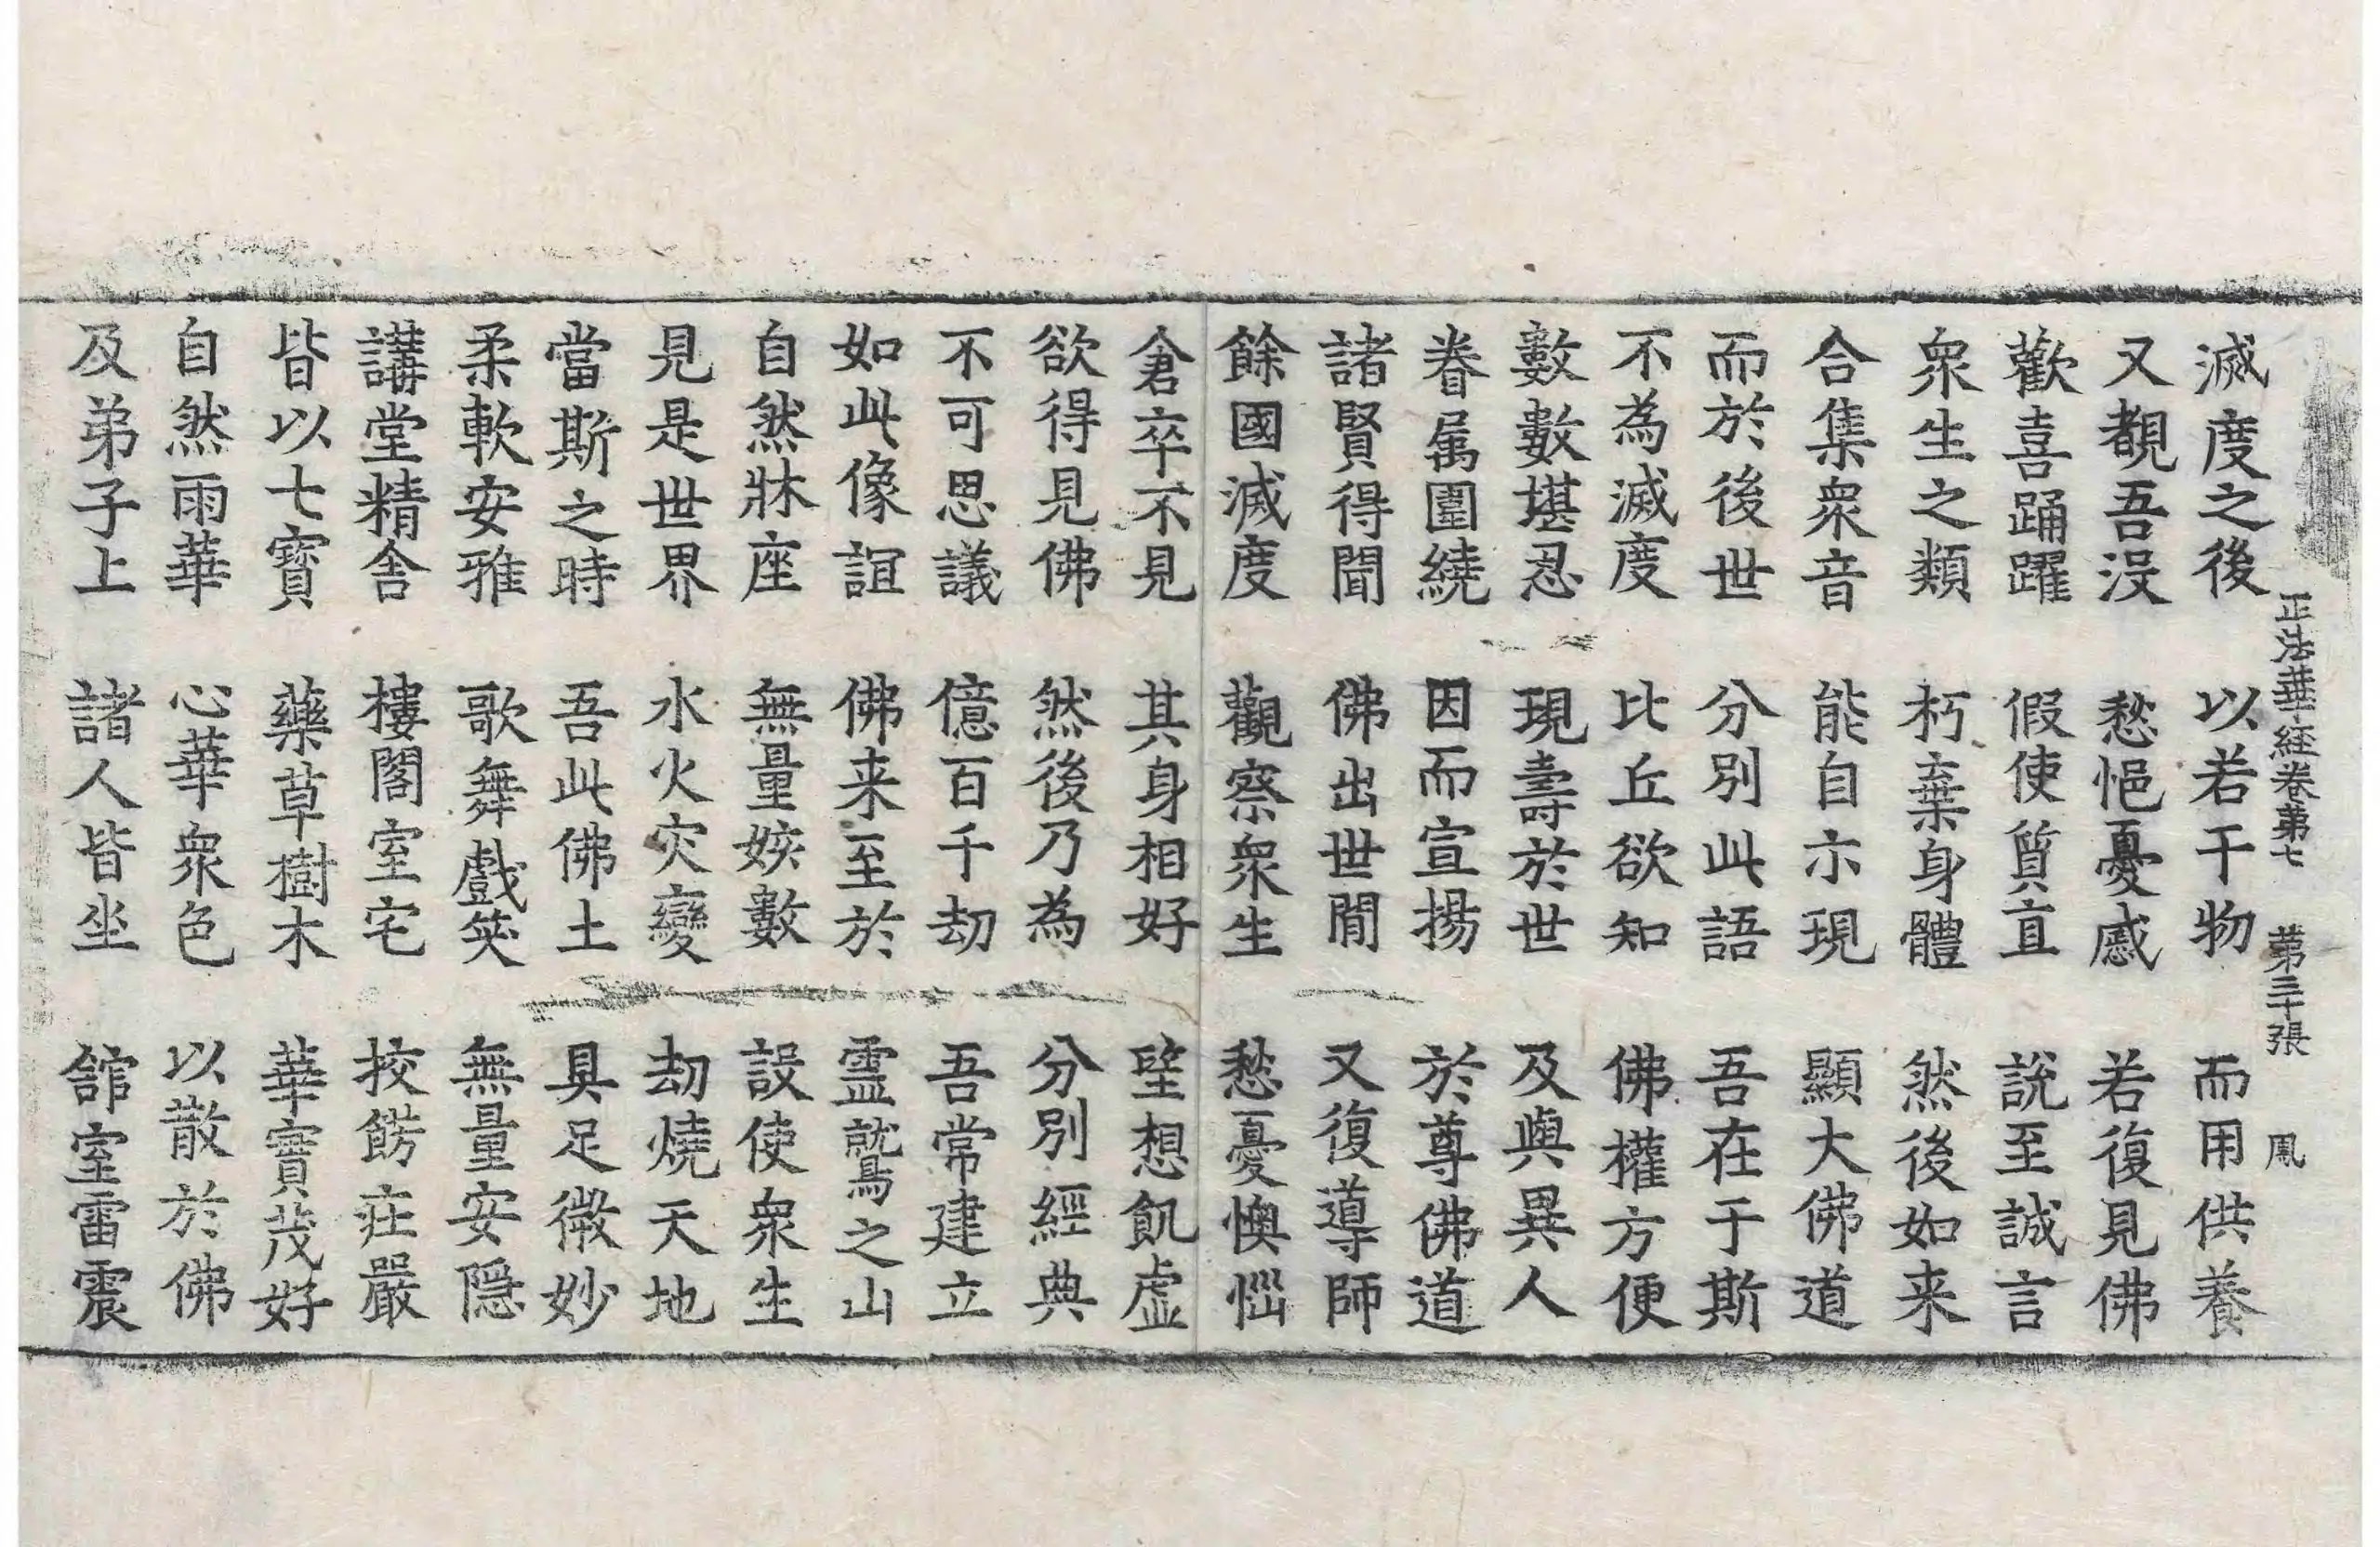 正法華経卷第七 第三十張 鳳
滅度之後 以若干物 而用供養
又覩吾没 愁悒憂慼 若復見佛
歡喜踊躍 假使質直 說至誠言
衆生之類 朽棄身體 然後如来
合集衆音 能自示現 顯大佛道
而於後世 分別此語 吾在于斯
不為滅度 比丘欲知 佛權方便
數數堪忍 現壽於世 及與異人
眷属圍繞 因而宣揚 於尊佛道
諸賢得聞 佛出世閒 又復導師
餘國滅度 觀察衆生 愁憂懊惱
倉卒不見 其身相好 望想飢虛
欲得見佛 然後乃為 分別經典
不可思議 億百千劫 吾常建立
如此像誼 佛来至於 靈鷲之山
自然牀座 無量姟數 設使衆生
見是世界 水火灾變 劫燒天地
當斯之時 吾此佛土 具足微妙
柔軟安雅 歌舞戲笑 無量安隱
講堂精舍 樓閣室宅 挍餝莊嚴
皆以七寶 藥草樹木 華實茂好
自然雨華 心華衆色 以散於佛
及弟子上 諸人皆坐 舘室雷震